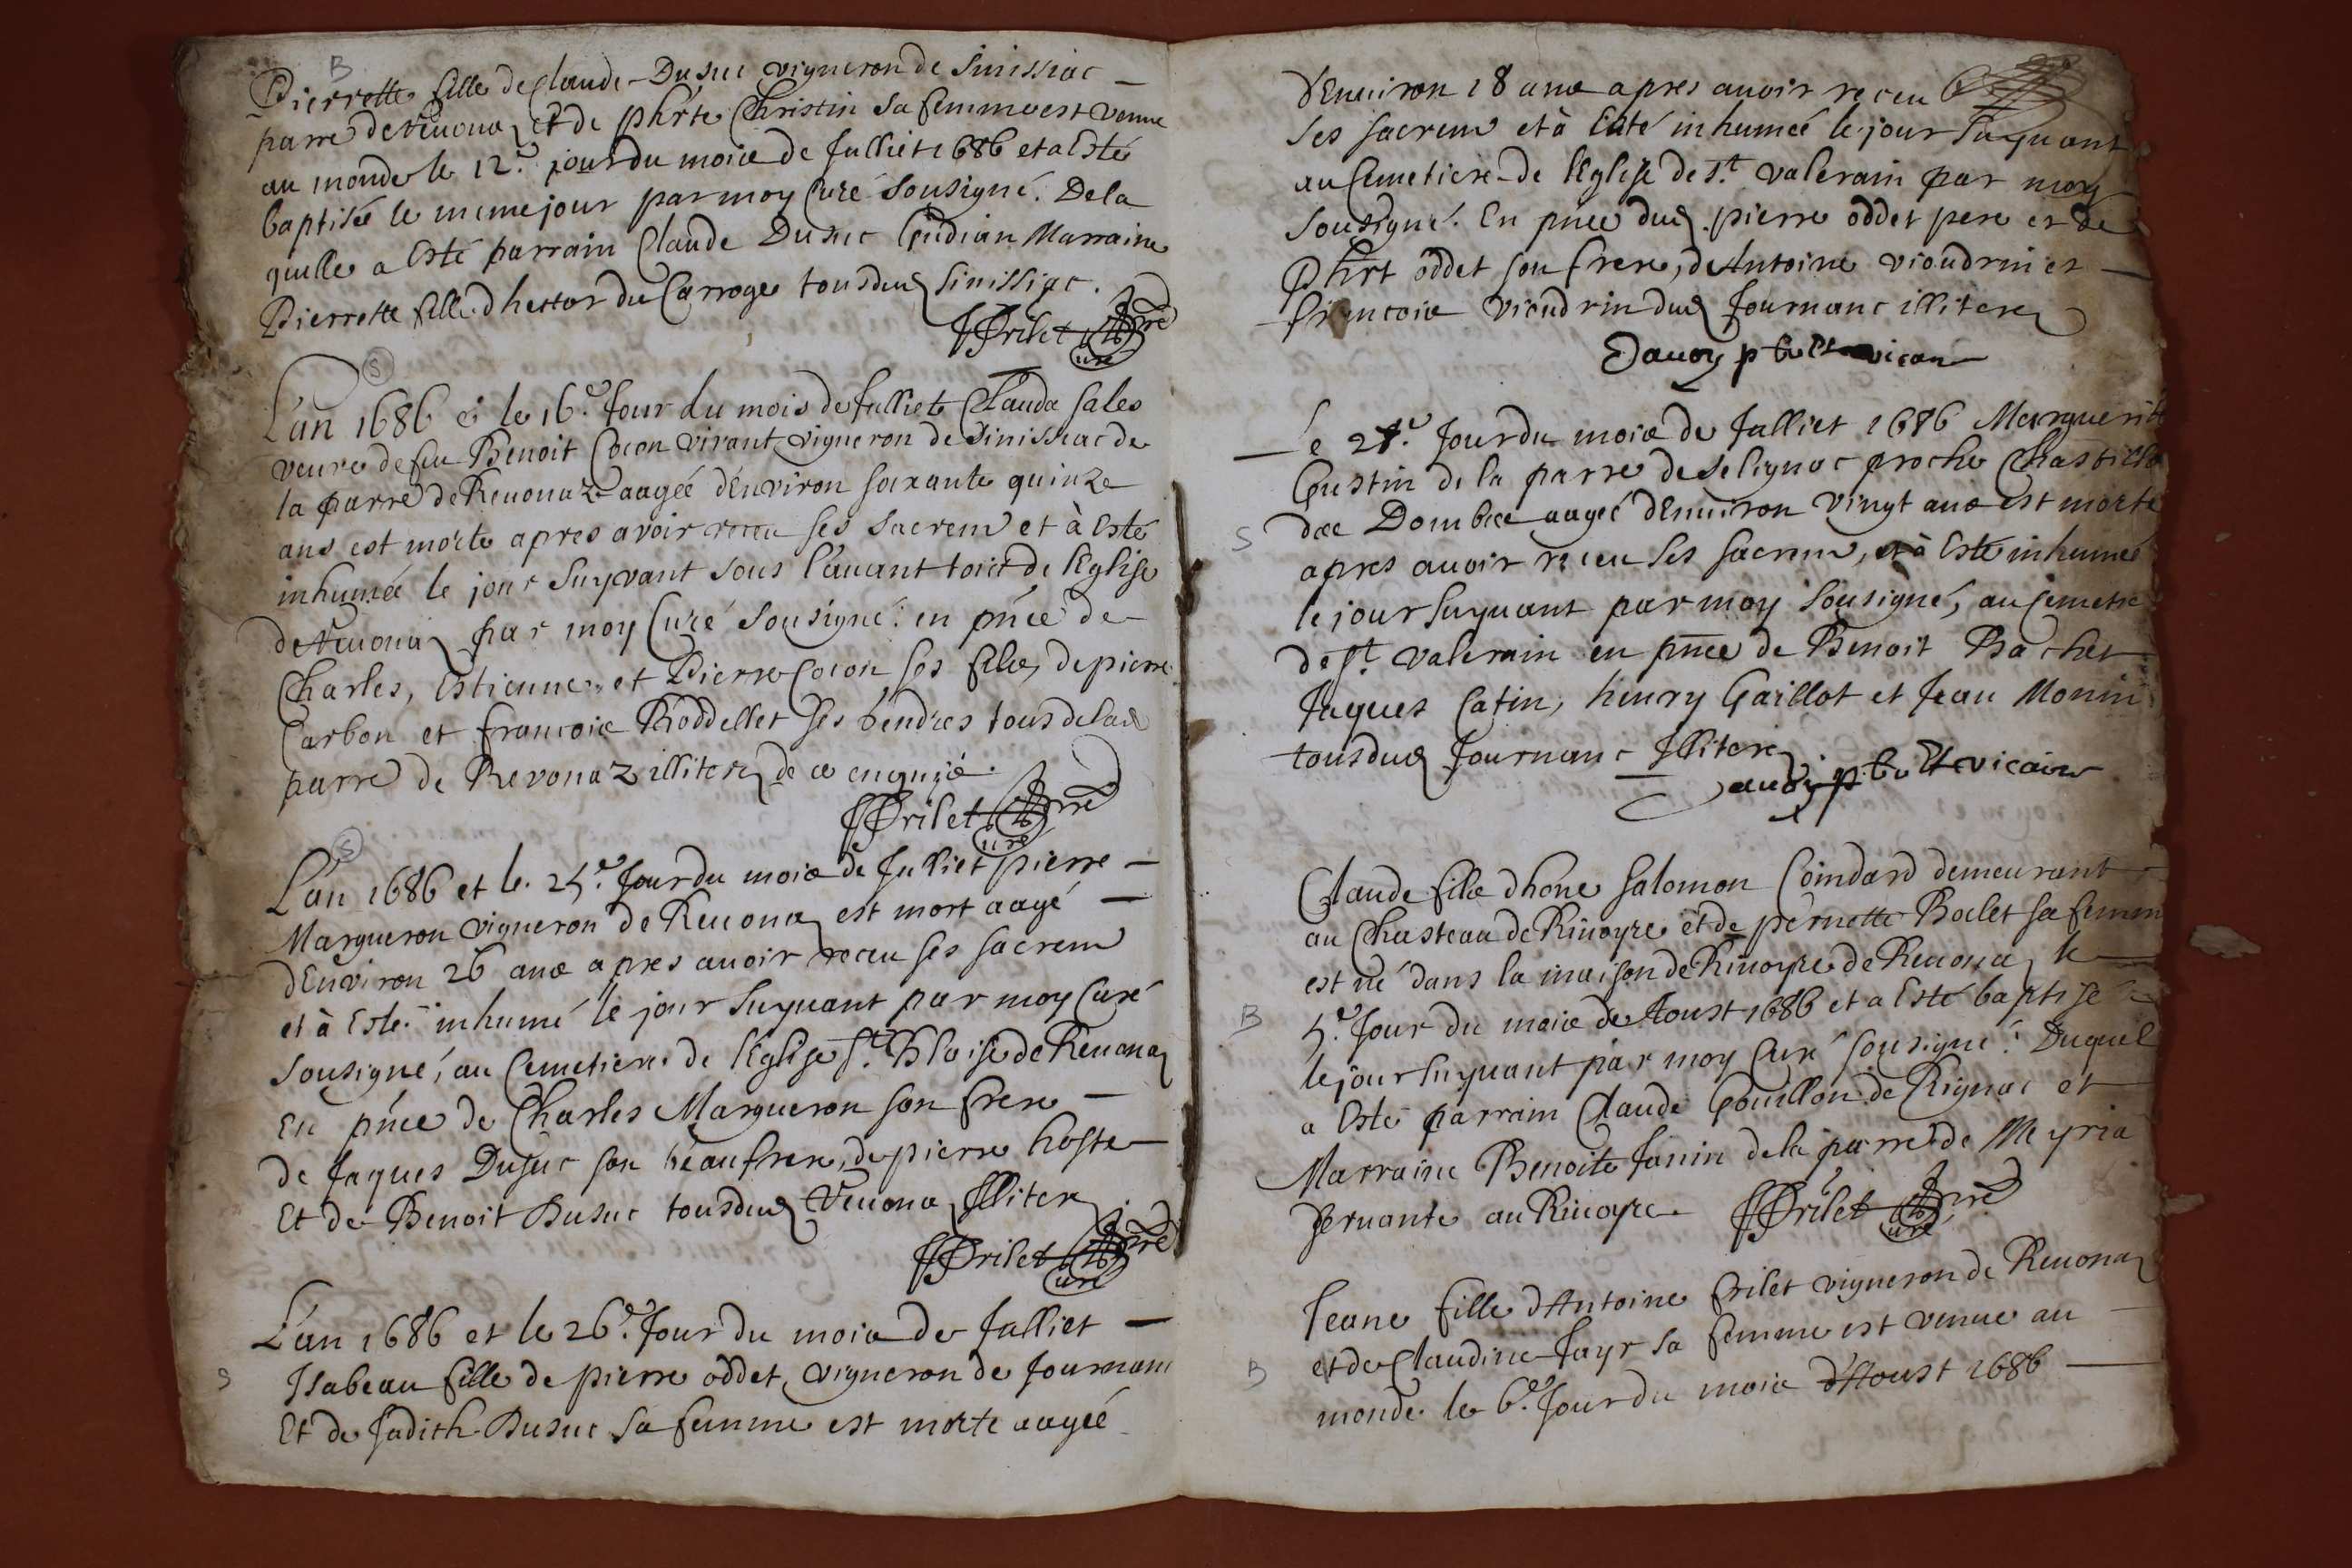 B
Pierrette fille de Claude Dusuc vigneron de Sinissiac
parre de Reuonaz et de phrte Christin sa femme est venue
au monde le 12.e jour du mois de Julliet 1686 et a Esté
baptisée le mime jour par moy Curé sousigné. De la
quelle a Esté parrain Claude Dusuc Marraine
Pierrette fille d hector du Carroge tous dud Sinissiac.
Frilet pre
curé
S
L'an 1686 & le 16.e Jour du mois de Julliet Clauda Sales
veuve de feu Benoit Cocon vivant vigneron de Sinissiac de
la parre de Reuonaz aagée d'Environ soixante quinze
ans est morte apres avoir receu ses sacremr et à Esté
inhumée le jour suyvant sous l'auant toict de l'Eglise
de Reuonaz par moy Curé sousigné: en pñce de
Charles, Estienne et Pierre Cocon ses filz, de pierre
Carbon et francois Roddellet ses Gendres tous de lad
parre de Revonaz illiterez de ce enquis.
Frilet pre
curé
S
L'an 1686 et le 25.e Jour du mois de Julliet pierre
Margueron vigneron de Reuonaz est mort aagé
d'Environ 26 ans apres auoir receu ses sacremr
et à Esté inhumé le jour suyuant par moy Curé
sousigné, au Cemetiere de l'Eglise St. Blaise de Reuonaz
En pñce de Charles Margueron son frere
de Jaques Dusuc son beaufrere, de pierre hoste
Et de Benoit Dusuc tous dud Reuonaz Illiterez.
Frilet pre
curé
L'an 1686 et le 26.e Jour du mois de Julliet
S Isabeau fille de pierre oddet, vigneron de Journanc
Et de Judith Dusuc sa femme est morte aagée
d'Enuiron 18 ans apres auoir receu
ses sacremr et à Esté inhumée le jour suyuant
au Cemetiere de l'Eglise de St. Valerain par moy
sousigné. En pñce dud. pierre oddet pere et de
Phirt oddet son frere, d'Antoine vioudrin et
francois vioudrin dud Journanc illiterez
Dauoy pbre et vicaire
Le 27.e Jour du mois de Julliet 1686 Marguerite
Gustin de la parre de Selignac proche Chastillon
S des Dombes aagée d'Enuiron vingt ans est morte
apres auoir receu ses sacremr, et à Esté inhumée
le jour suyuant par moy sousigné, au Cemetie
de St. Valerain en pñce de Benoit Bachet
Jaques Catin, henry Gaillot et Jean Monin
tous dud Journanc Illiterez.
Dauoy pbre et vicaire
Claude filz d hone Salomon Coindard demeurant
au Chasteau de Riuoyre et de pernette Bolet sa femm
est né dans la maison de Riuoyre de Reuonaz le
B 5.e Jour du mois de Aoust 1686 et a Esté baptisé
le jour suyuant par moy Curé sousigné. Duquel
a Esté parrain Claude Gouillon de Rignac et
Marraine Benoite Janin de la parre de Meyria
seruante au Riuoyre. Frilet pre
curé
Jeane fille d'Antoine frilet vigneron de Reuonaz
B et de Claudine Jayr sa femme est venue au
monde le 6.e Jour du mois d'Aoust 1686